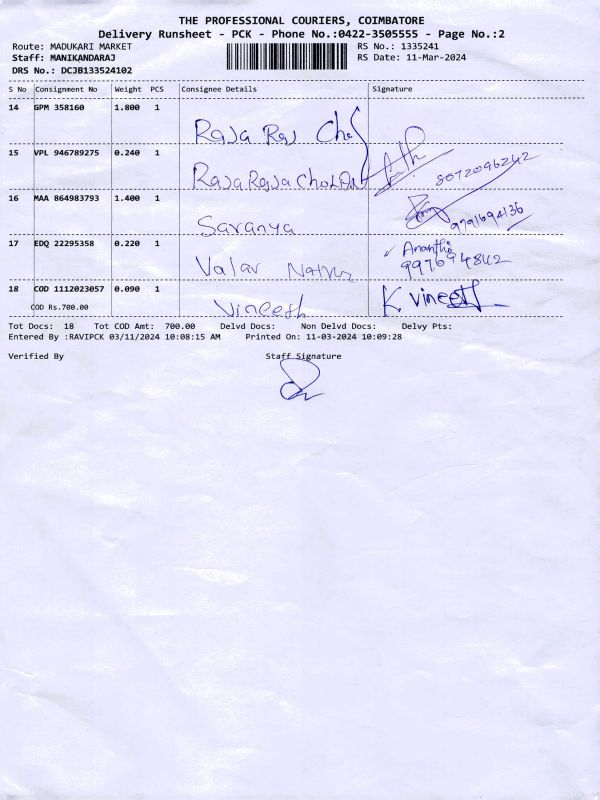 THE PROFESSIONAL COURIERS, COIMBATORE
Delivery Runsheet - PCK - Phone No.:0422-3505555 - Page No.:2
Route: MADUKARI MARKET RS No.: 1335241
Staff: MANIKANDARAJ RS Date: 11-Mar-2024
DRS No.: DCJB133524102
S No Consignment No Weight PCS Consignee Details Signature
14 GPM 358160 1.800 1
Raja Raj
15 VPL 946789275 0.240 1
Raja Raja CHOLAN 8072096242
16 MAA 864983793 1.400 1
Saranya 9791694136
17 EDQ 22295358 0.220 1 Ananthi
Valar
18 COD 1112023057 0.090 1 K vineeth
COD Rs.700.00 Vineeth
Tot Docs: 18 Tot COD Amt: 700.00 Delvd Docs: Non Delvd Docs: Delvy Pts:
Entered By :RAVIPCK 03/11/2024 10:08:15 AM Printed On: 11-03-2024 10:09:28
Verified By Staff Signature